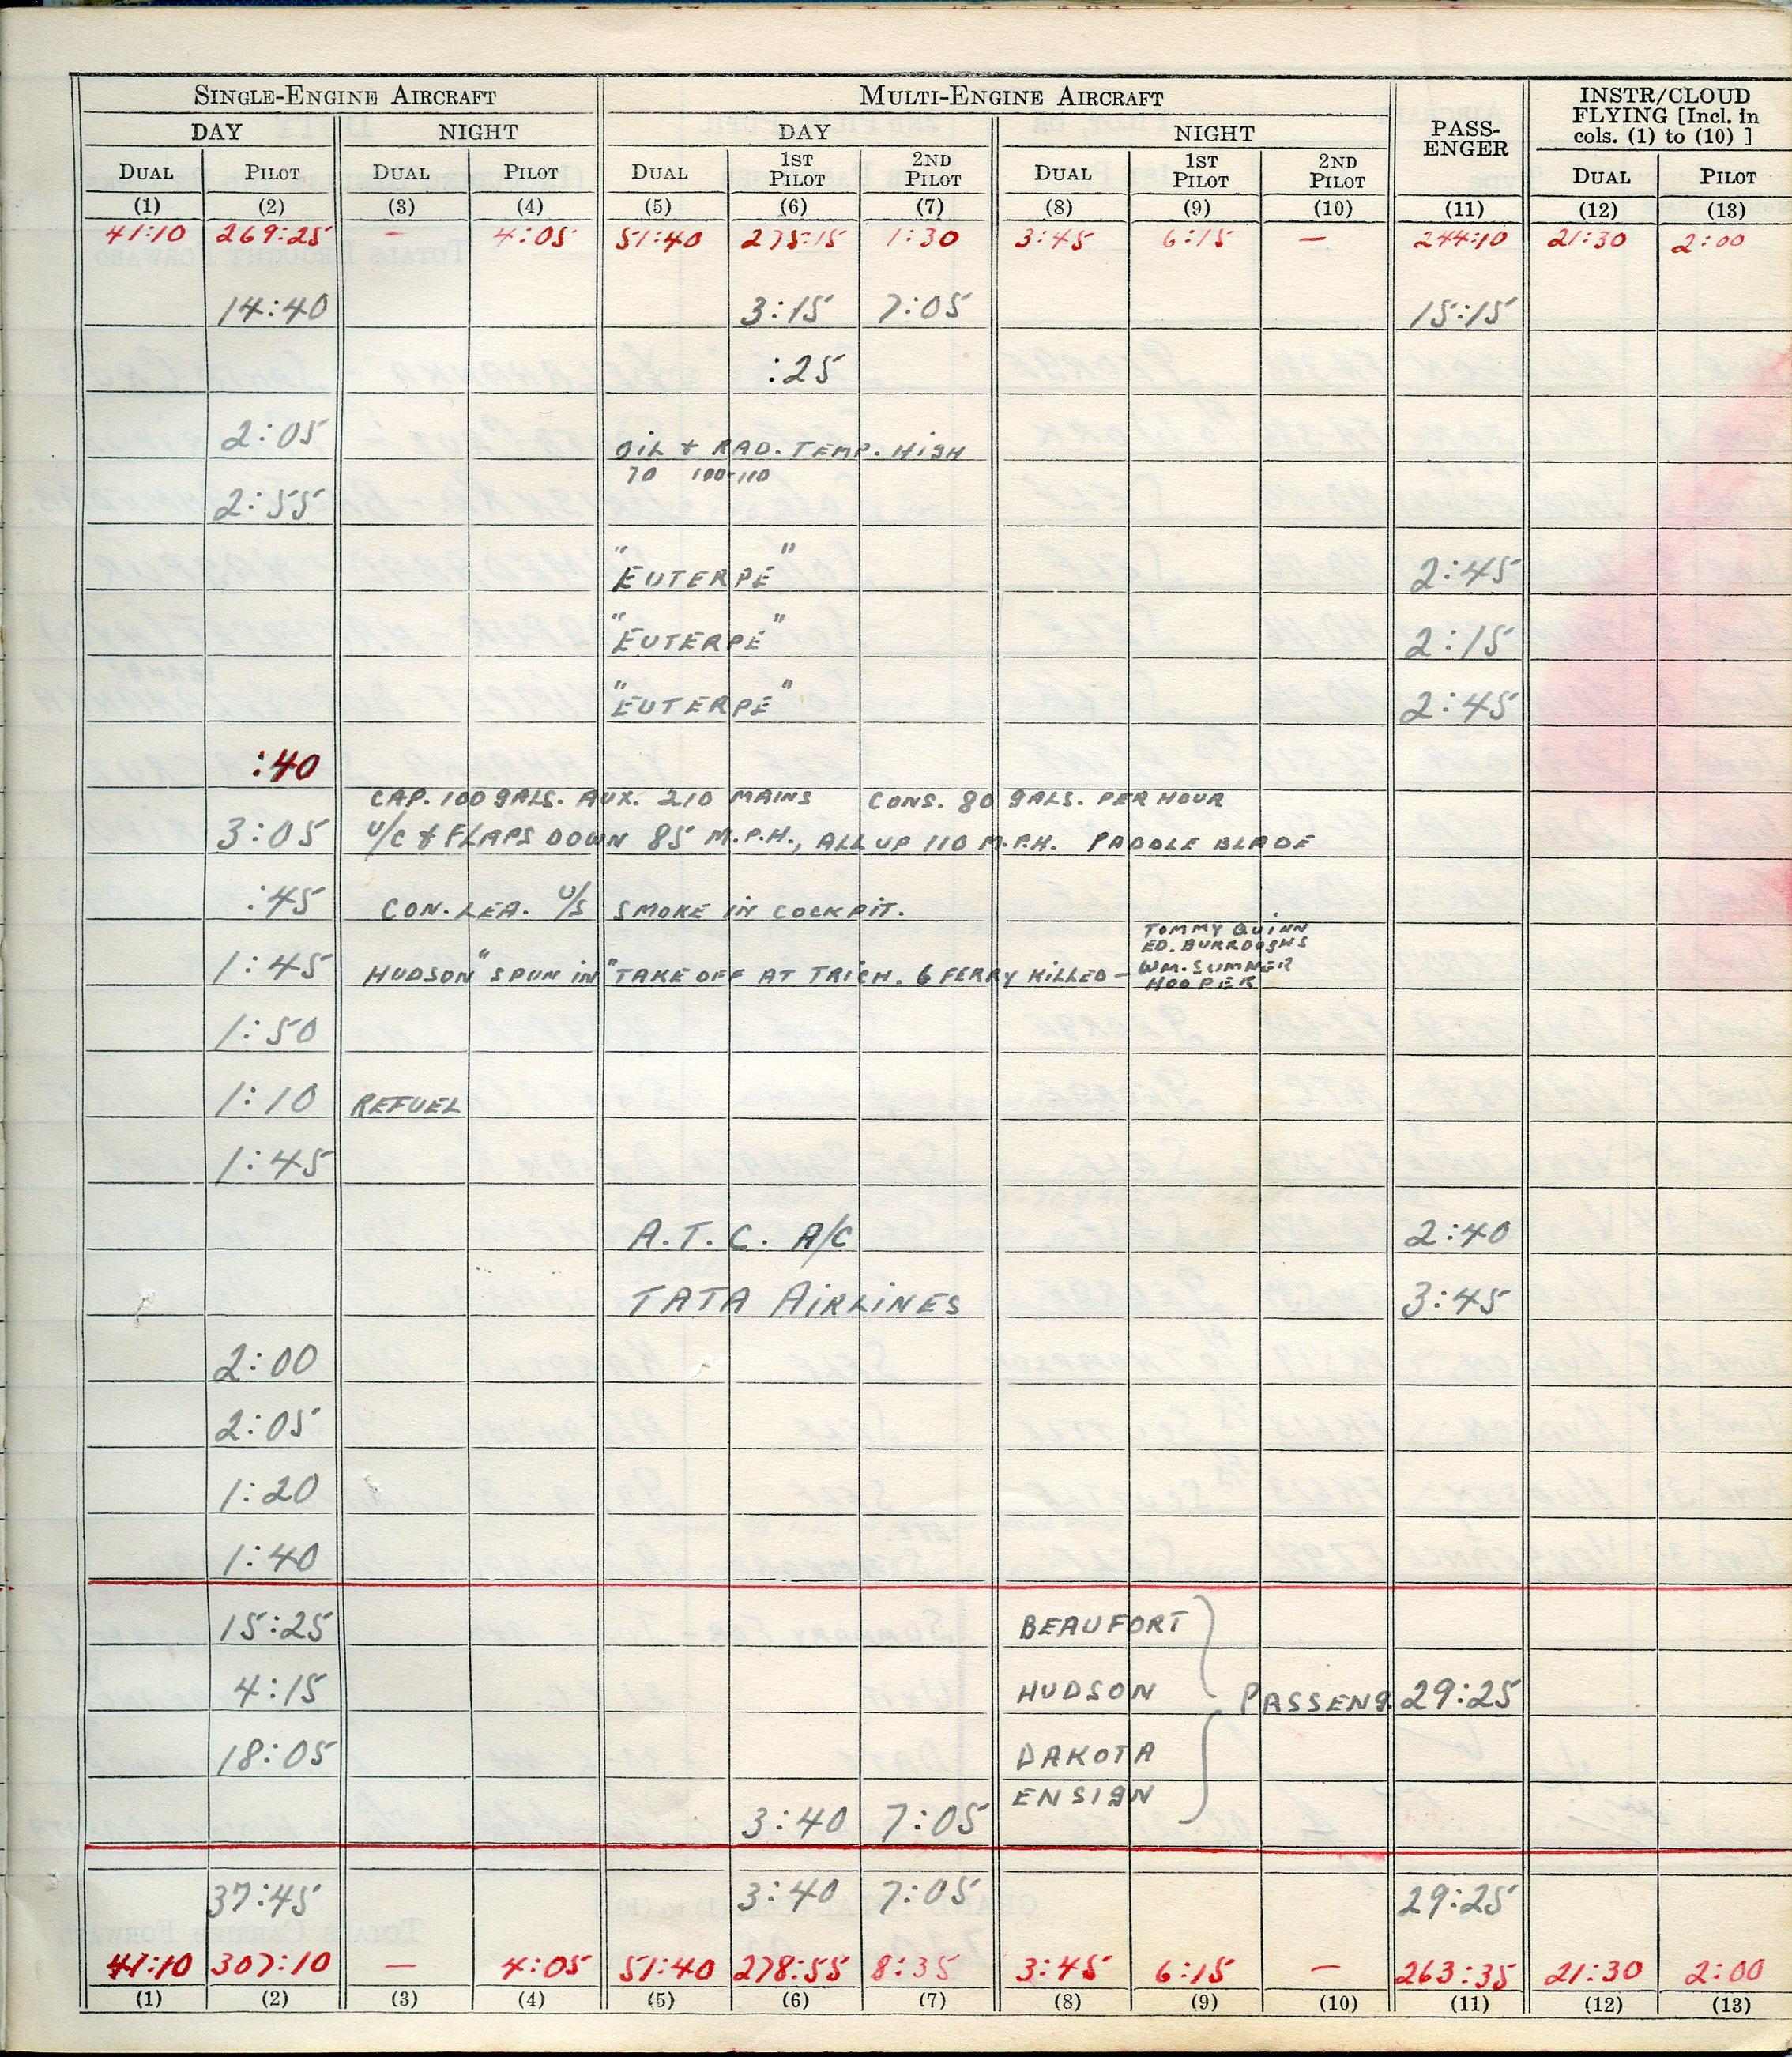 SINGLE-ENGINE AIRCRAFT MULTI-ENGINE AIRCRAFT PASS-ENGER INSTR/CLOUD FLYING [Incl. in cols. (1) to (10) ]
DAY NIGHT DAY NIGHT
DUAL PILOT DUAL PILOT DUAL 1ST PILOT 2ND PILOT DUAL 1ST PILOT 2ND PILOT DUAL PILOT
(1) (2) (3) (4) (5) (6) (7) (8) (9) (10) (11) (12) (13)
41:10 269:25 — 4:05 51:40 275:15 1:30 3:45 6:15 — 244:10 21:30 2:00
14:40 3:15 7:05 15:15
:25
2:05 OIL & RAD. TEMP. HIGH
70 100-110
2:55
"EUTERPE" 2:45
"EUTERPE" 2:15
"EUTERPE" 2:45
:40
CAP. 100 GALS. AUX. 210 MAINS CONS. 80 GALS. PER HOUR
3:05 U/C & FLAPS DOWN 85 M.P.H., ALL UP 110 M.P.H. PADDLE BLADE
:45 CON. LEA. U/S SMOKE IN COCKPIT.
TOMMY QUINN
ED. BURROUGHS
1:45 HUDSON "SPUN IN" TAKE OFF AT TRICH. 6 FERRY KILLED – WM. SUMNER
HOOPER
1:50
1:10 REFUEL
1:45
A.T.C. A/C 2:40
TATA AIRLINES 3:45
2:00
2:05
1:20
1:40
15:25 BEAUFORT
4:15 HUDSON PASSENG. 29:25
18:05 DAKOTA
ENSIGN
3:40 7:05
37:45 3:40 7:05 29:25
41:10 307:10 — 4:05 51:40 278:55 8:35 3:45 6:15 — 263:35 21:30 2:00
(1) (2) (3) (4) (5) (6) (7) (8) (9) (10) (11) (12) (13)